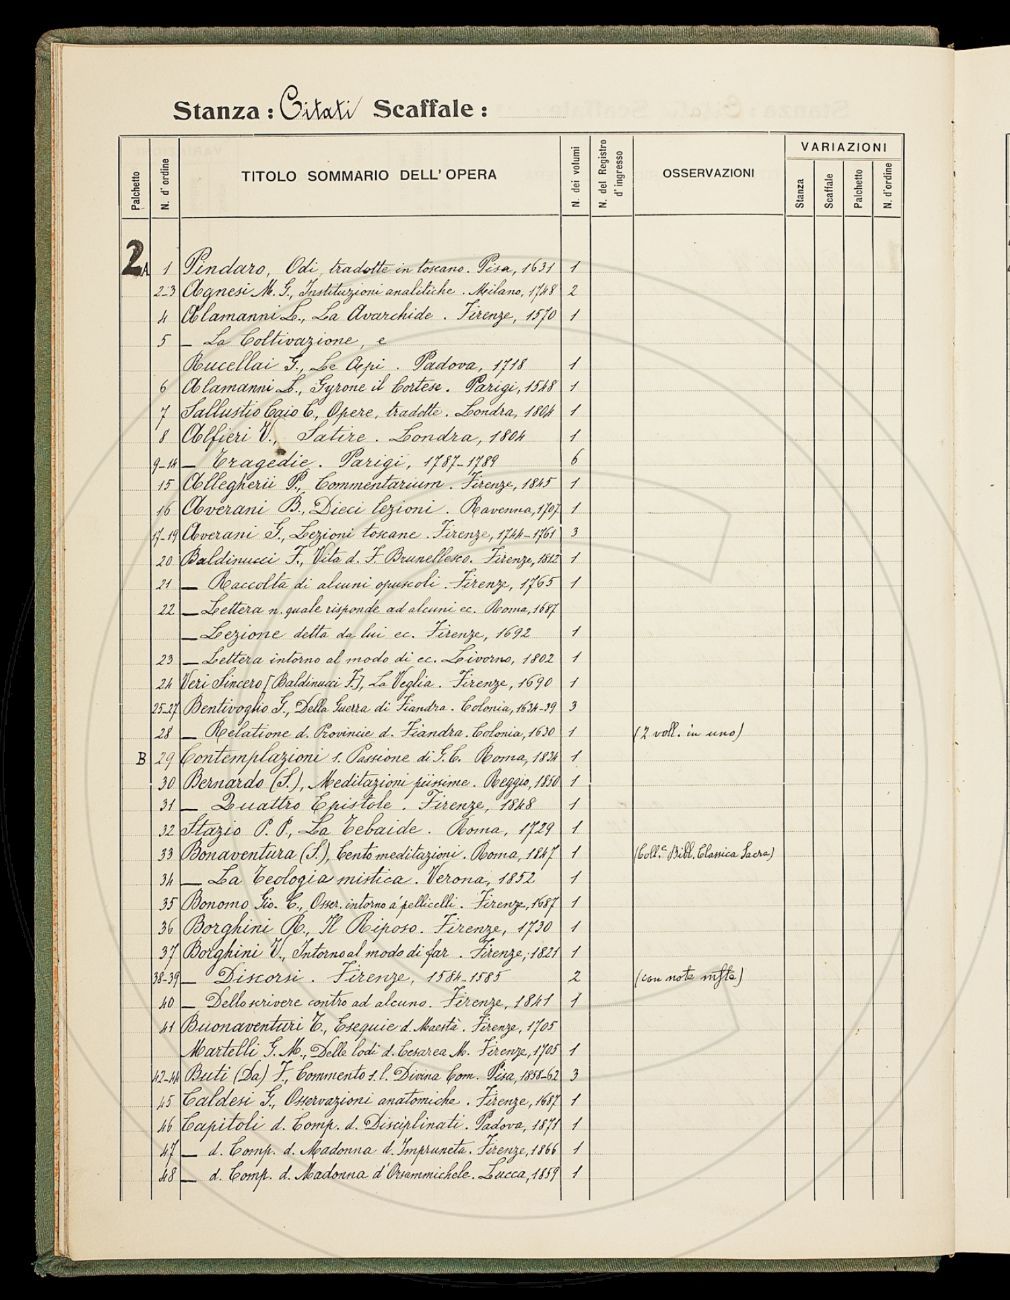 Stanza: Citati Scaffale:
Palchetto N. d'ordine TITOLO SOMMARIO DELL'OPERA N. dei volumi N. del Registro d'ingresso OSSERVAZIONI VARIAZIONI
Stanza Scaffale Palchetto N. d'ordine
2A 1 Pindaro, Odi, tradotte in toscano. Pisa, 1631 1
2-3 Agnesi M. G., Instituzioni analitiche. Milano, 1748 2
4 Alamanni L., La Avarchide. Firenze, 1570 1
5 — La Coltivazione, e
Rucellai G., Le Api. Padova, 1718 1
6 Alamanni L., Gyrone il Cortese. Parigi, 1548 1
7 Sallustio Caio C., Opere, tradotte. Londra, 1804 1
8 Alfieri V., Satire. Londra, 1804 1
9-14 — Tragedie. Parigi, 1787-1789 6
15 Allegherii P., Commentarium. Firenze, 1845 1
16 Averani B., Dieci lezioni. Ravenna, 1707 1
17-19 Averani G., Lezioni toscane. Firenze, 1744-1761 3
20 Baldinucci F., Vita d. F. Brunellesco. Firenze, 1812 1
21 — Raccolta di alcuni opuscoli. Firenze, 1765 1
22 — Lettera n. quale risponde ad alcuni ec. Roma, 1687
— Lezione detta da lui ec. Firenze, 1692 1
23 — Lettera intorno al modo di ec. Livorno, 1802 1
24 Veri Sincero [Baldinucci F.], La Veglia. Firenze, 1690 1
25-27 Bentivoglio G., Della Guerra di Fiandra. Colonia, 1634-39 3
28 — Relatione d. Provincie d. Fiandra. Colonia, 1630 1 (2 voll. in uno)
B 29 Contemplazioni s. Passione di G. C. Roma, 1834 1
30 Bernardo (S.), Meditazioni piissime. Reggio, 1850 1
31 — Quattro Epistole. Firenze, 1848 1
32 Stazio P. P., La Tebaide. Roma, 1729 1
33 Bonaventura (S.), Cento meditazioni. Roma, 1847 1 (Coll.e Bibl. Classica Sacra)
34 — La Teologia mistica. Verona, 1852 1
35 Bonomo Gio. C., Osser. intorno a' pellicelli. Firenze, 1687 1
36 Borghini R., Il Riposo. Firenze, 1730 1
37 Borghini V., Intorno al modo di far. Firenze, 1821 1
38-39 — Discorsi. Firenze, 1584-1585 2 (con note mste)
40 — Dello scrivere contro ad alcuno. Firenze, 1841 1
41 Buonaventuri T., Esequie d. Maestà. Firenze, 1705
Martelli G. M., Delle lodi d. Cesarea M. Firenze, 1705 1
42-44 Buti (Da) F., Commento s. l. Divina Com. Pisa, 1858-62 3
45 Caldesi G., Osservazioni anatomiche. Firenze, 1687 1
46 Capitoli d. Comp. d. Disciplinati. Padova, 1871 1
47 — d. Comp. d. Madonna d. Impruneta. Firenze, 1866 1
48 — d. Comp. d. Madonna d'Orsammichele. Lucca, 1859 1